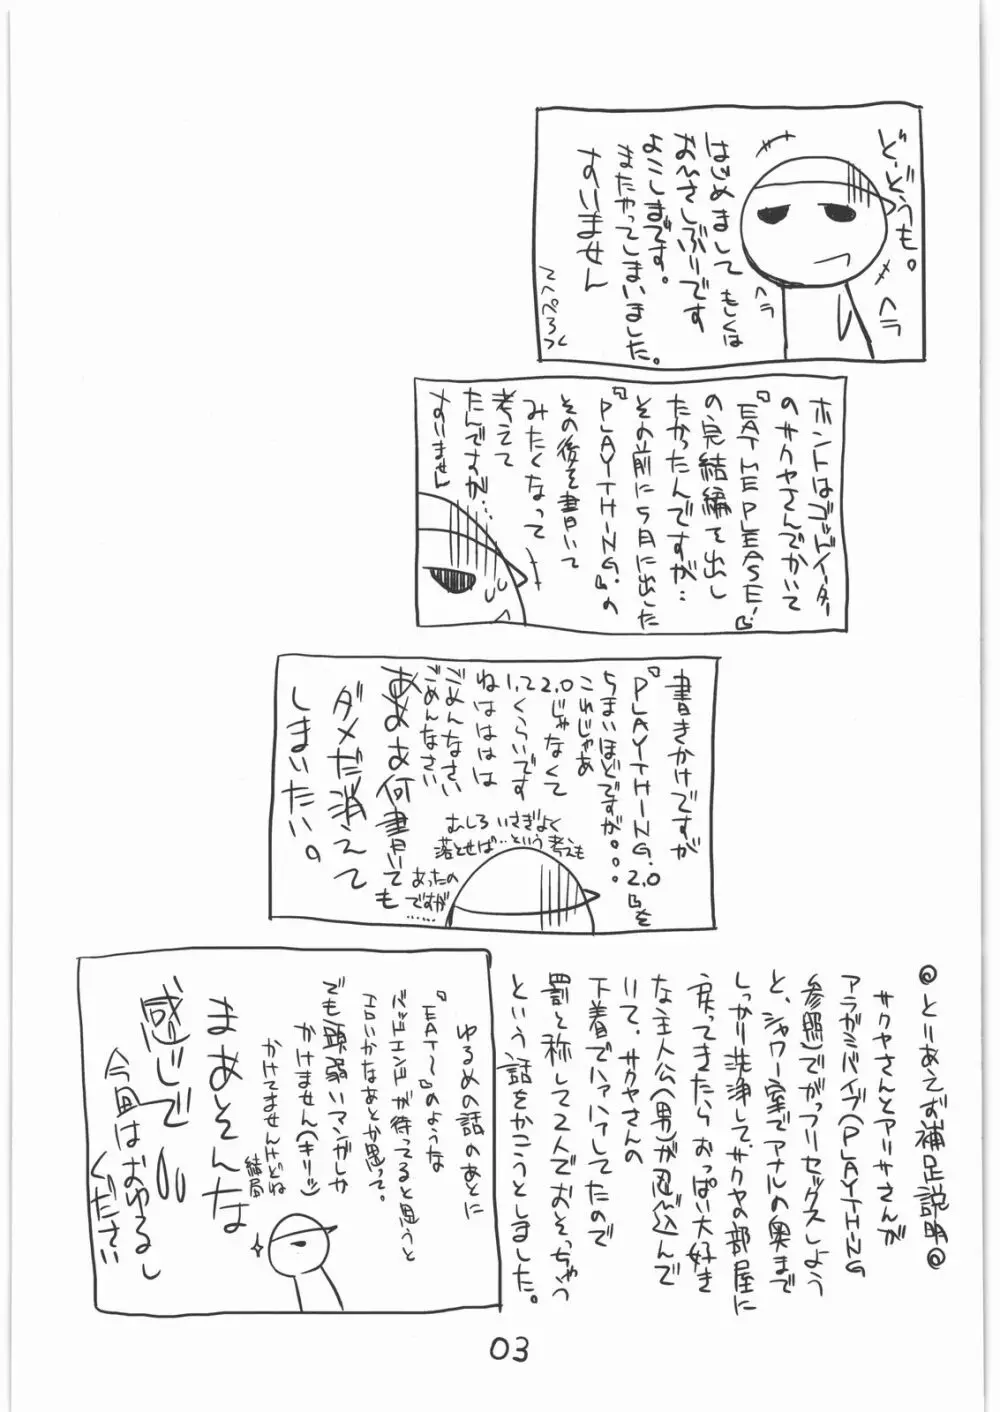 ど、どうも。
ヘラ
ヘラ
はじめまして もしくは
おひさしぶりです
よこしまです。
またやってしまいました。
すいません
てへぺろっ
ホントはゴッドイーター
のサクヤさんでかいて
『EAT ME PLEASE!』
の完結編を出し
たかったんですが…
その前に5月に出した
『PLAYTHING。』の
その後を書いて
みたくなって
考えて
たんですが…
すいません
書きかけですが
『PLAYTHING.2.0』を
うまいほどですが。。。
これじゃあ
2.0じゃなくて
1.くらいです
ねはははは
ごよんなさい
ごめんなさい
ああお何書いても
ダメだ消えて
しまいたい。
むしろ いさぎよく
落とせば…という考えも
あったの
ですが
……
@とりあえず補足説明@
サクヤさんとアリサさんが
アラガミバイブ(PLAYTHING
参照)でがっつりセックスしよう
と、シャワー室でアナルの奥まで
しっかり洗浄して、サクヤの部屋に
戻ってきたら おっぱい大好き
な主人公(男)が忍び込んで
いて、サクヤさんの
下着でハァハァしてたので
罰と称して2人でおそっちゃう
という話をかこうとしました。
ゆるめの話のあとに
『EAT〜』のような
バッドエンドが待ってると思うと
エロいかなあとか思って。
でも頭弱いマンガしか
かけません(キリッ)
かけてませんけどね
結局
まあそんな
感じで
今回はおゆるし
ください
03